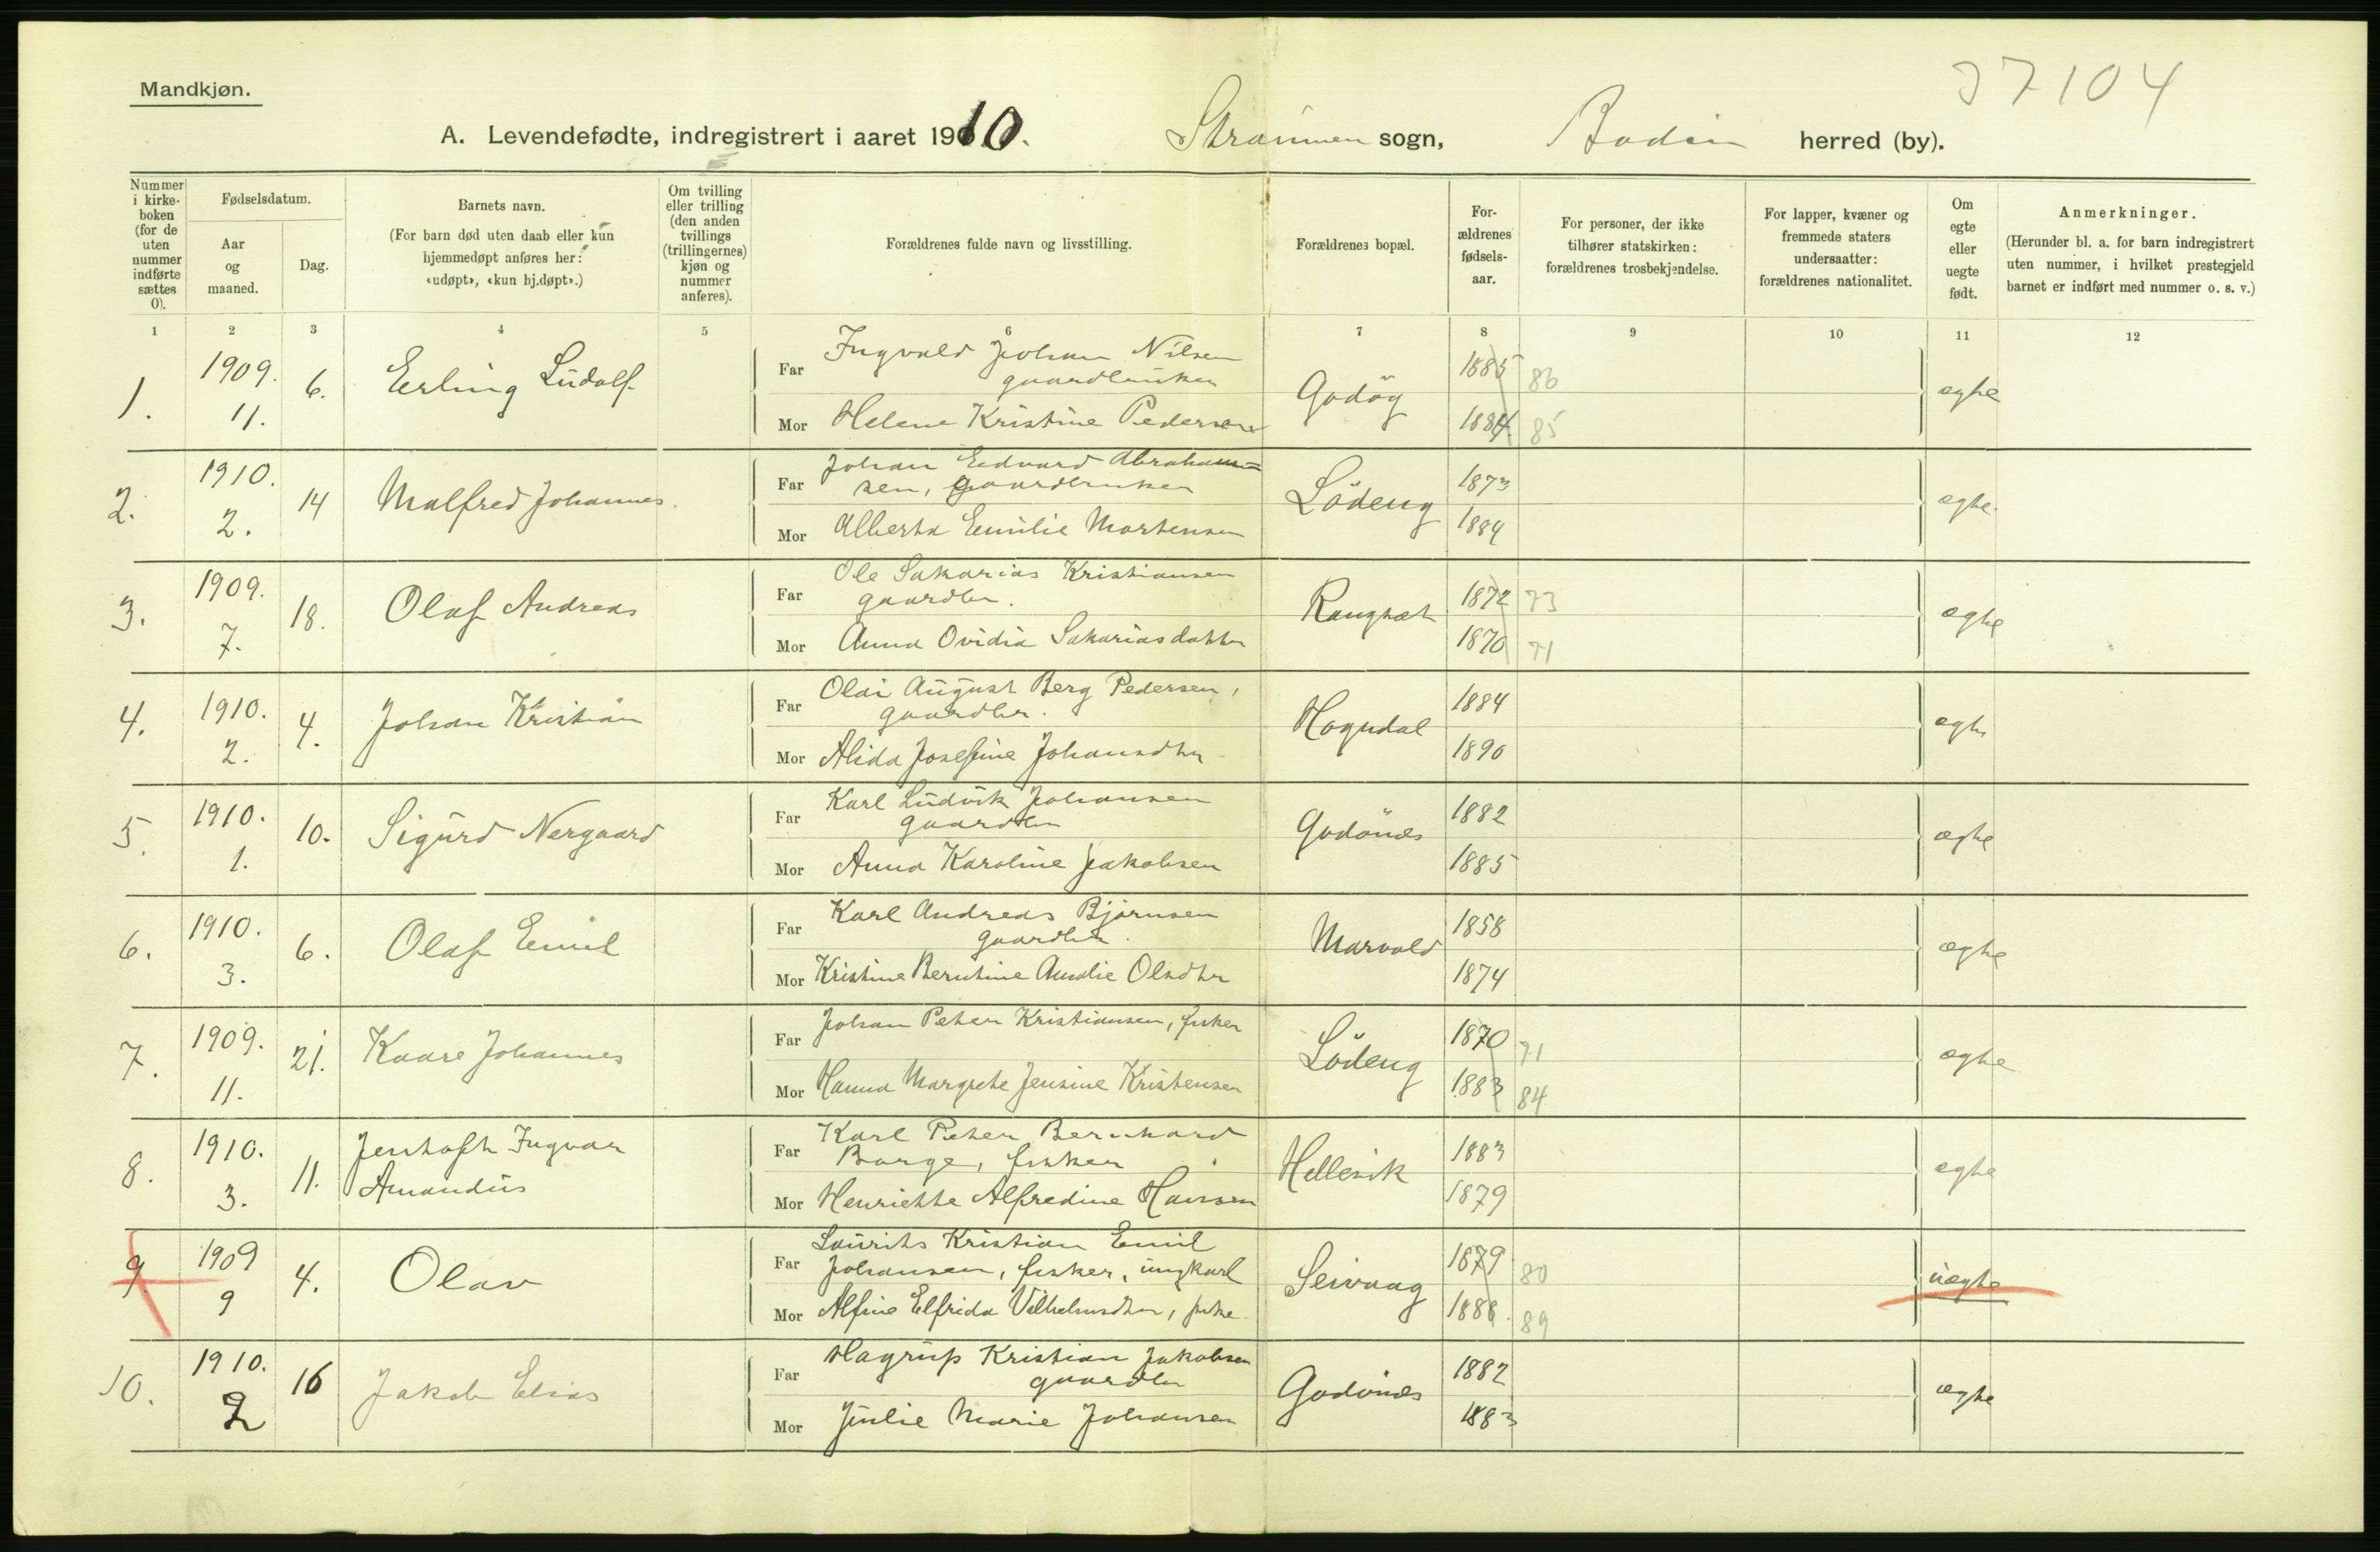 37104
Mandkjøn.
A. Levendefødte, indregistrert i aaret 1910. Strømmen sogn, Bodin herred (by).
Nummer i kirke-boken (for de uten nummer indførte sættes 0).
Fødselsdatum.
Aar og maaned.
Dag.
Barnets navn.
(For barn død uten daab eller kun hjemmedøpt anføres her: «udøpt», «kun hj.døpt».)
Om tvilling eller trilling (den anden tvillings (trillingernes) kjøn og nummer anføres).
Forældrenes fulde navn og livsstilling.
Forældrenes bopæl.
For-ældrenes fødsels-aar.
For personer, der ikke tilhører statskirken: forældrenes trosbekjendelse.
For lapper, kvæner og fremmede staters undersaatter: forældrenes nationalitet.
Om egte eller uegte født.
Anmerkninger.
(Herunder bl. a. for barn indregistrert uten nummer, i hvilket prestegjeld barnet er indført med nummer o. s. v.)
1 2 3 4 5 6 7 8 9 10 11 12
1. 1909. 11. 6. Erling Ludolf
Far Ingvald Johan Nilsen gaardbruker
Mor Helene Kristine Pedersen
Godøy 1885 86 1884. 85 ægte
2. 1910. 2. 14 Malfred Johannes.
Far Johan Edvard Abraham=
sen, gaardbruker
Mor Alberta Emilie Mortensen
Lødeng 1873 1884 ægte.
3. 1909. 7. 18. Olaf Andreas
Far Ole Sakarias Kristiansen
gaardbr.
Mor Anna Ovidia Sakariasdatter
Rangsæt 1872 73 1870 71 ægte
4. 1910. 2. 4. Johan Kristian
Far Olai August Berg Pedersen,
gaardbr.
Mor Alida Josefine Johansdtr
Hogndal 1884 1890 ægte
5. 1910. 1. 10. Sigurd Nergaard
Far Karl Ludvik Johansen
gaardbr
Mor Anna Karoline Jakobsen
Godønes 1882 1885 ægte
6. 1910. 3. 6. Olaf Emil
Far Karl Andreas Bjørnsen
gaardbr.
Mor Kristine Berntine Amalie Olsdtr
Marvold 1858 1874 ægte
7. 1909. 11. 21. Kaare Johannes
Far Johan Peter Kristiansen, fisker
Mor Hanna Margrete Jensine Kristensen
Lødeng 1870 71 1883 84 ægte
8. 1910. 3. 11. Jentoft Ingvar
Amandus
Far Karl Peter Bernhard
Borge, fisker
Mor Henriette Alfredine Hansen
Hellevik 1883 1879 ægte
9. 1909 9 4. Olav
Far Laurits Kristian Emil
Johansen, fisker, ungkarl
Mor Alfine Elfrida Vilhelmsdtr, pike
Seivaag 1879 80 1888. 89 uægte
10. 1910. 2 16 Jakob Elias
Far Hagrup Kristian Jakobsen
gaardbr
Mor Julie Marie Johansen
Godønes 1882 1883 ægte